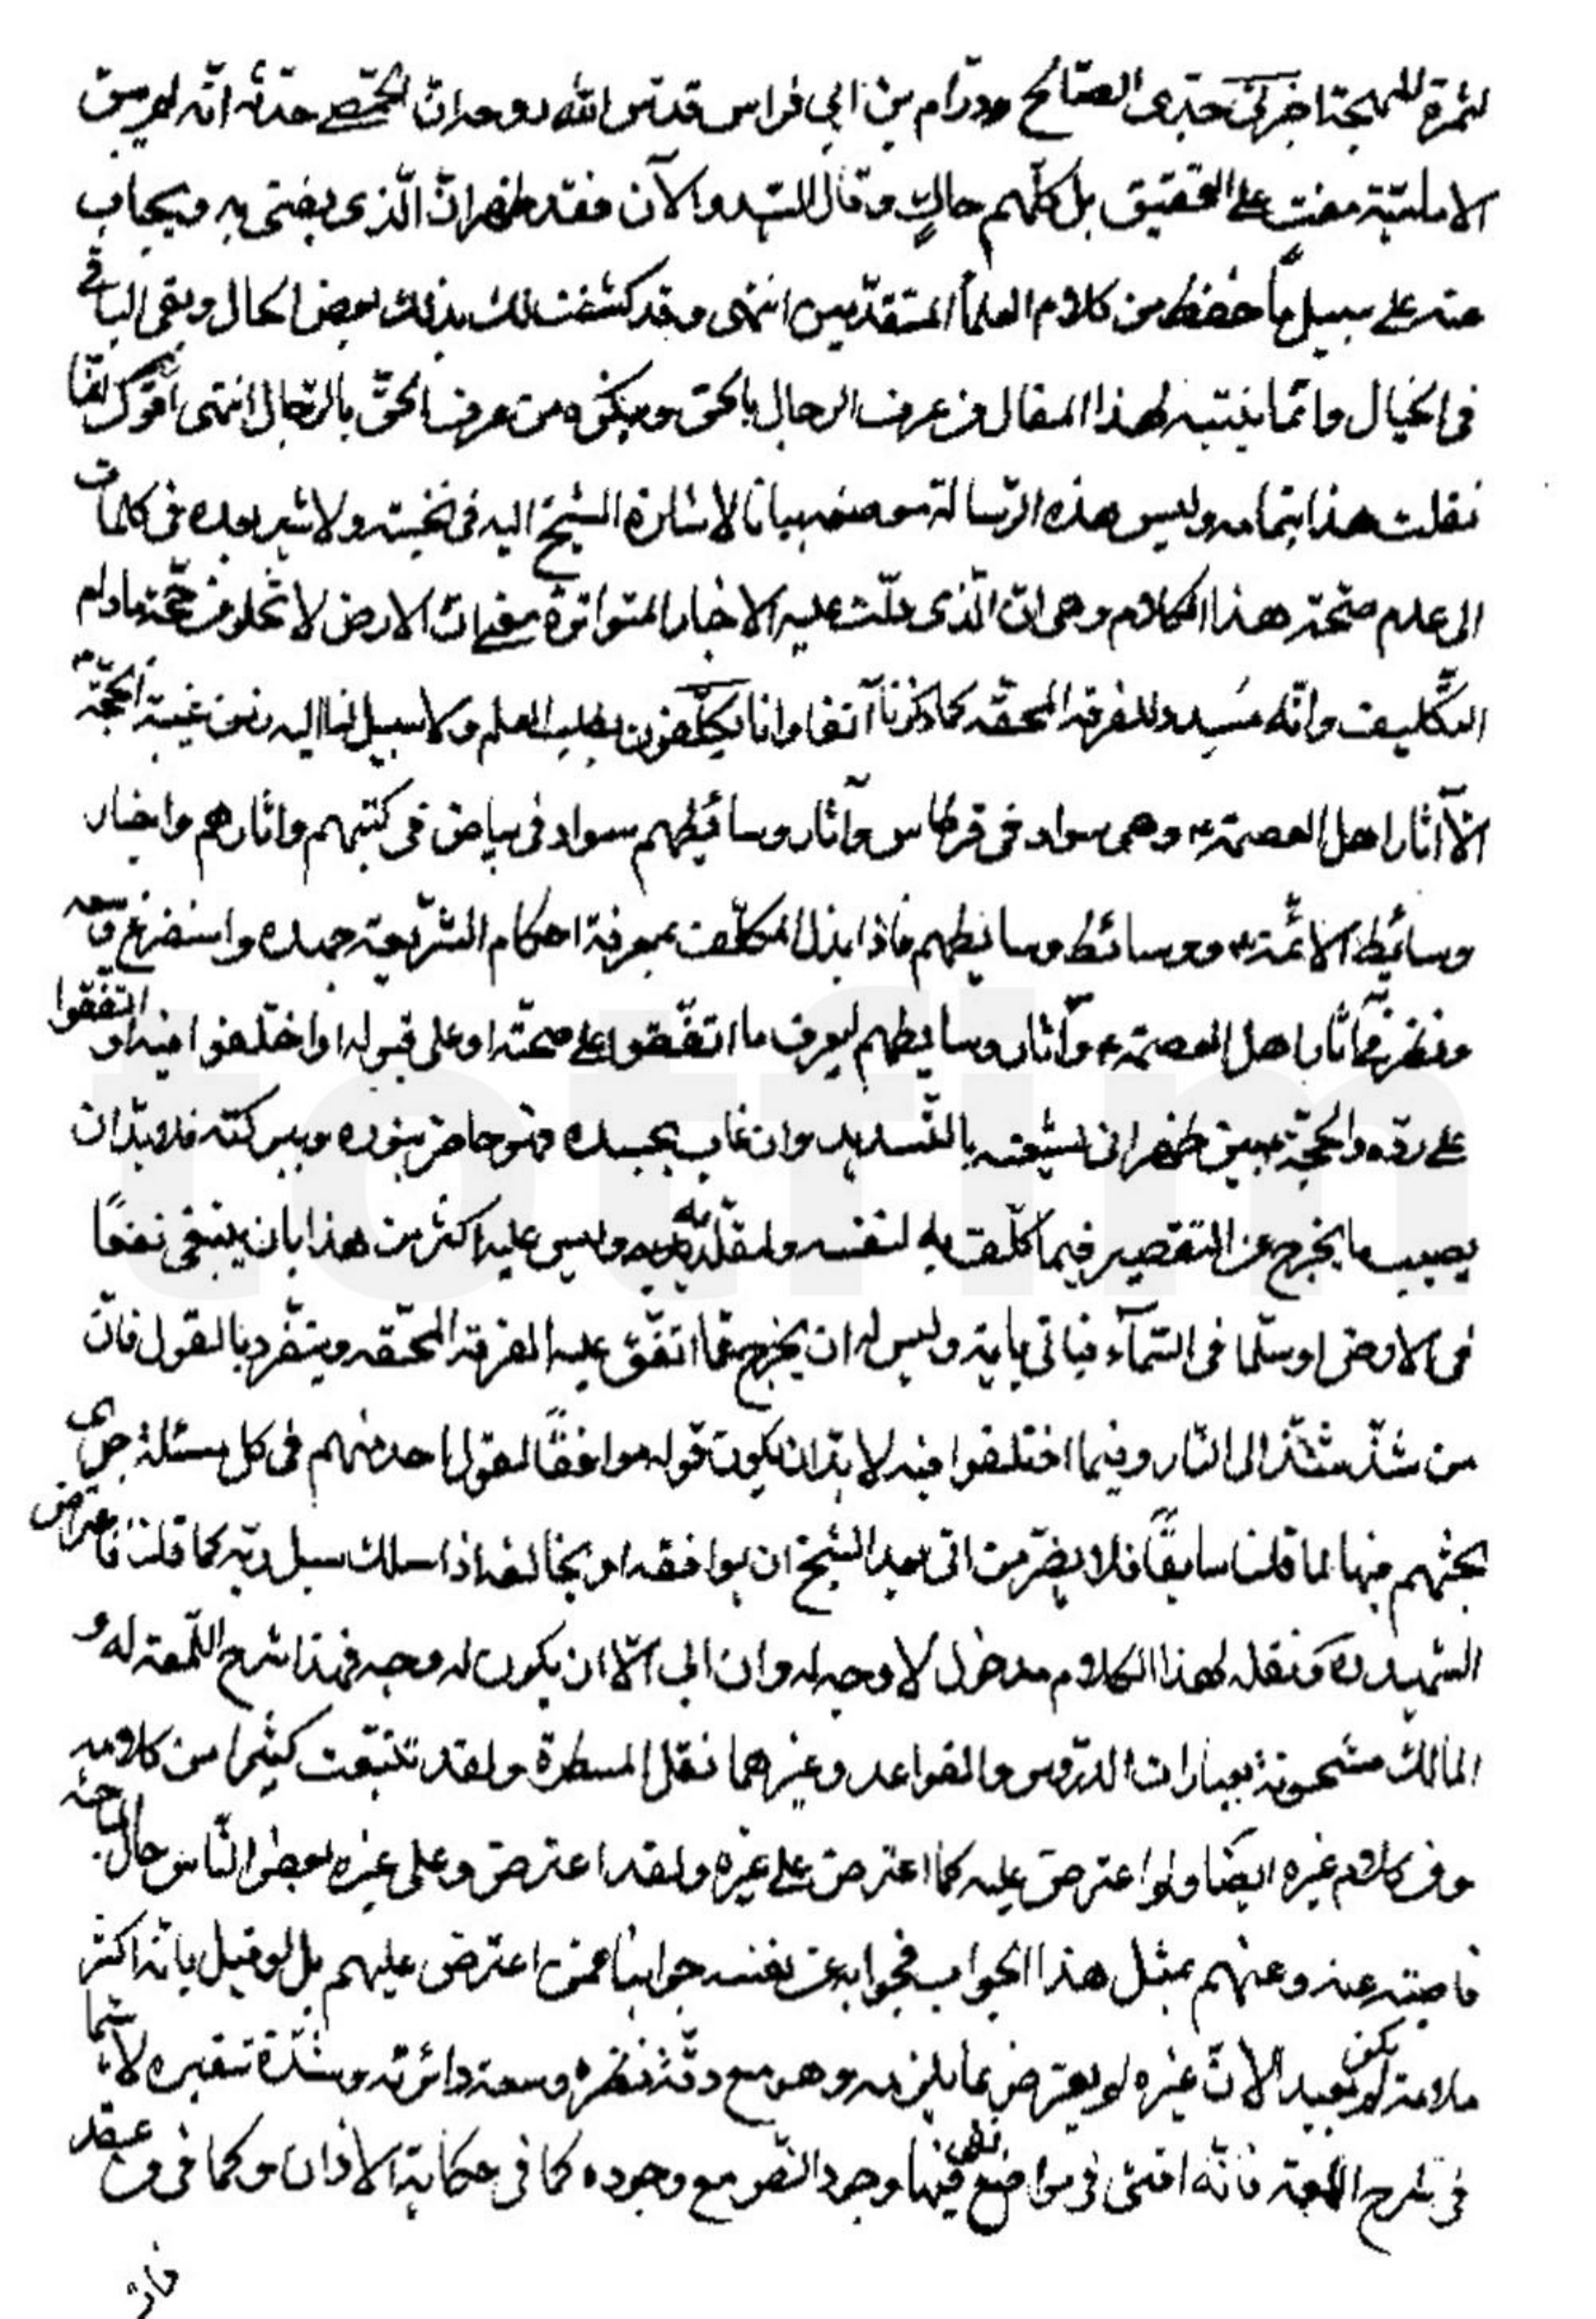 لثمرة المهجة اخبرني جدى الصالح ورّام بن ابي فراس قدس الله روحه ان الحمصي حدثه انه لم يبق
الامامية مفت على التحقيق بل كلهم حاك وقال السيد والآن فقد ظهر ان الذى يفتى به ويجاب
عنه على سبيل ما حفظ من كلام العلماء المتقدمين انتهى وقد كشفت لك بذلك بعض الحال وبقى الباقى
فى الخيال وانما ينتبه لهذا المقال من عرف الرجال بالحق وينكره من عرف الحق بالرجال انتهى اقول انما
نقلت هذا بتمامه وليس هذه الرسالة موضعه بيانا لاشارة الشيخ اليه فى نخبته ولاشير بعده فى كلمات
الى عدم صحة هذا الكلام وهى ان الذى دلت عليه الاخبار المتواترة معنى ان الارض لا تخلو من حجة مادام
التكليف وانه مسدد للفرقة المحقه كما ذكرنا آنفا وانا مكلفون بطلب العلم ولا سبيل لنا اليه زمن غيبة الحجة
الا آثار اهل العصمة وهى سواد فى قرطاس وآثار وسائطهم سواد فى بياض فى كتبهم واثارهم واخبار
وسائط الائمة ووسائط وسائطهم فاذا بذل المكلف بمعرفة احكام الشريعة جهده واستفرغ وسعه
ونظر فى آثار اهل العصمة وآثار وسايطهم ليعرف ما اتفقوا على صحته او على قبوله او اختلفوا فيه او اتفقوا
على رده والحجة بين ظهرانى شيعته بالتسديد وان غاب بجسده فهو حاضر بنوره وببركته فلا بد ان
يصيب ما يخرج عن التقصير فيما كلف به لنفسه ولمقلديه وليس عليه اكثر من هذا بان يبتغى نفقا
فى الارض او سلما فى السماء فياتى باية وليس له ان يخرج عما اتفق عليه الفرقة المحقه ويتفرد بالقول فان
من شذ شذ الى النار وفيما اختلفوا فيه لا بد ان يكون قوله موافقا لقول احد منهم فى كل مسئلة جرى
بحثهم فيها لما قلنا سابقا فلا يضر من اتى بعد الشيخ ان يوافقه او يخالفه اذا سلك سبل ربه كما قلنا فاعتراض
الشهيد ره ونقله لهذا الكلام مدخول لا وجه له وان ابى الا ان يكون له وجه فهذا شرح اللمعة له و
المسالك مشحونة بعبارات الدروس والقواعد وغيرهما نقل المسطرة ولقد تتبعت كثيرا من كلامه
وفى كلام غيره ايضا ولو اعترض عليه كما اعترض على غيره ولقد اعترض وعلى غيره بعض الناس حال المباحثه
فاجبته عنه وعنهم بمثل هذا الجواب فجوابه عن نفسه جوابنا عمن اعترض عليهم بل لو قيل بانه اكثر
ملامة لم يكن بعيد الان غيره لم يعترض بما يلزمه وهو مع دقة نظره وسعة دائرته وشدة تنقيره لا سيما
فى شرح اللمعة فانه افتى فى مواضع نفى فيها وجود النص مع وجوده كما فى حكاية الاذان وكما فى وقد